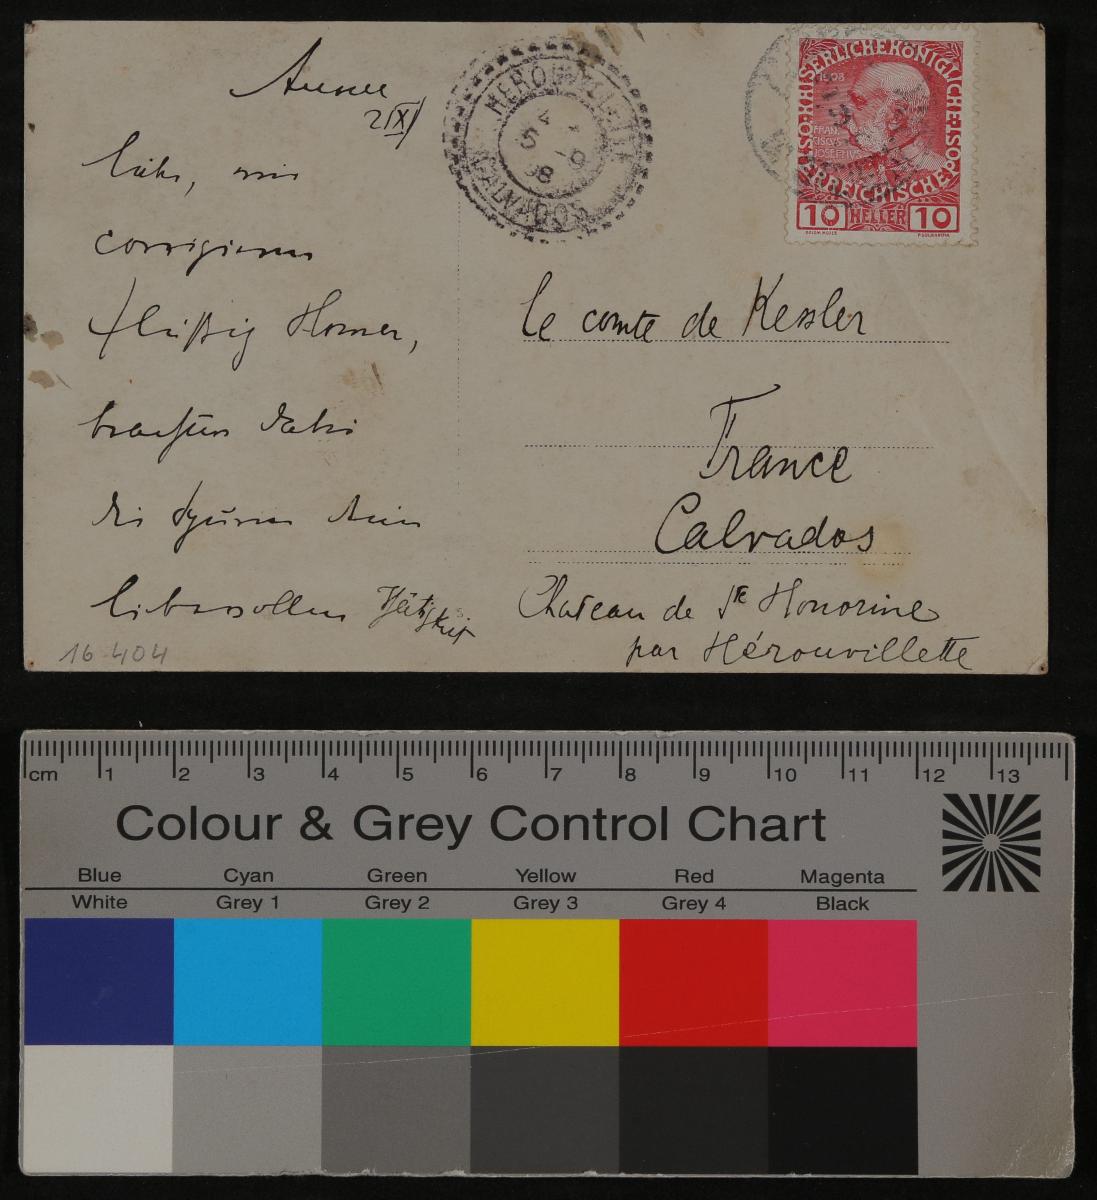 Aussee
2/IX
Lieber, wir
corrigieren
fleißig Homer,
beachten dabei
die Spuren Deiner
liebevollen Thätigkeit
16 404
HEROUVILLETTE
5 -9
08
CALVADOS
KAISERLICHE KÖNIGLICHE ÖSTERREICHISCHE POST
1908
FRAN
CISCVS
JOSEFIVS
10 HELLER 10
le comte de Kessler
France
Calvados
Chateau de Ste Honorine
par Hérouvillette
cm 1 2 3 4 5 6 7 8 9 10 11 12 13
Colour & Grey Control Chart
Blue Cyan Green Yellow Red Magenta
White Grey 1 Grey 2 Grey 3 Grey 4 Black